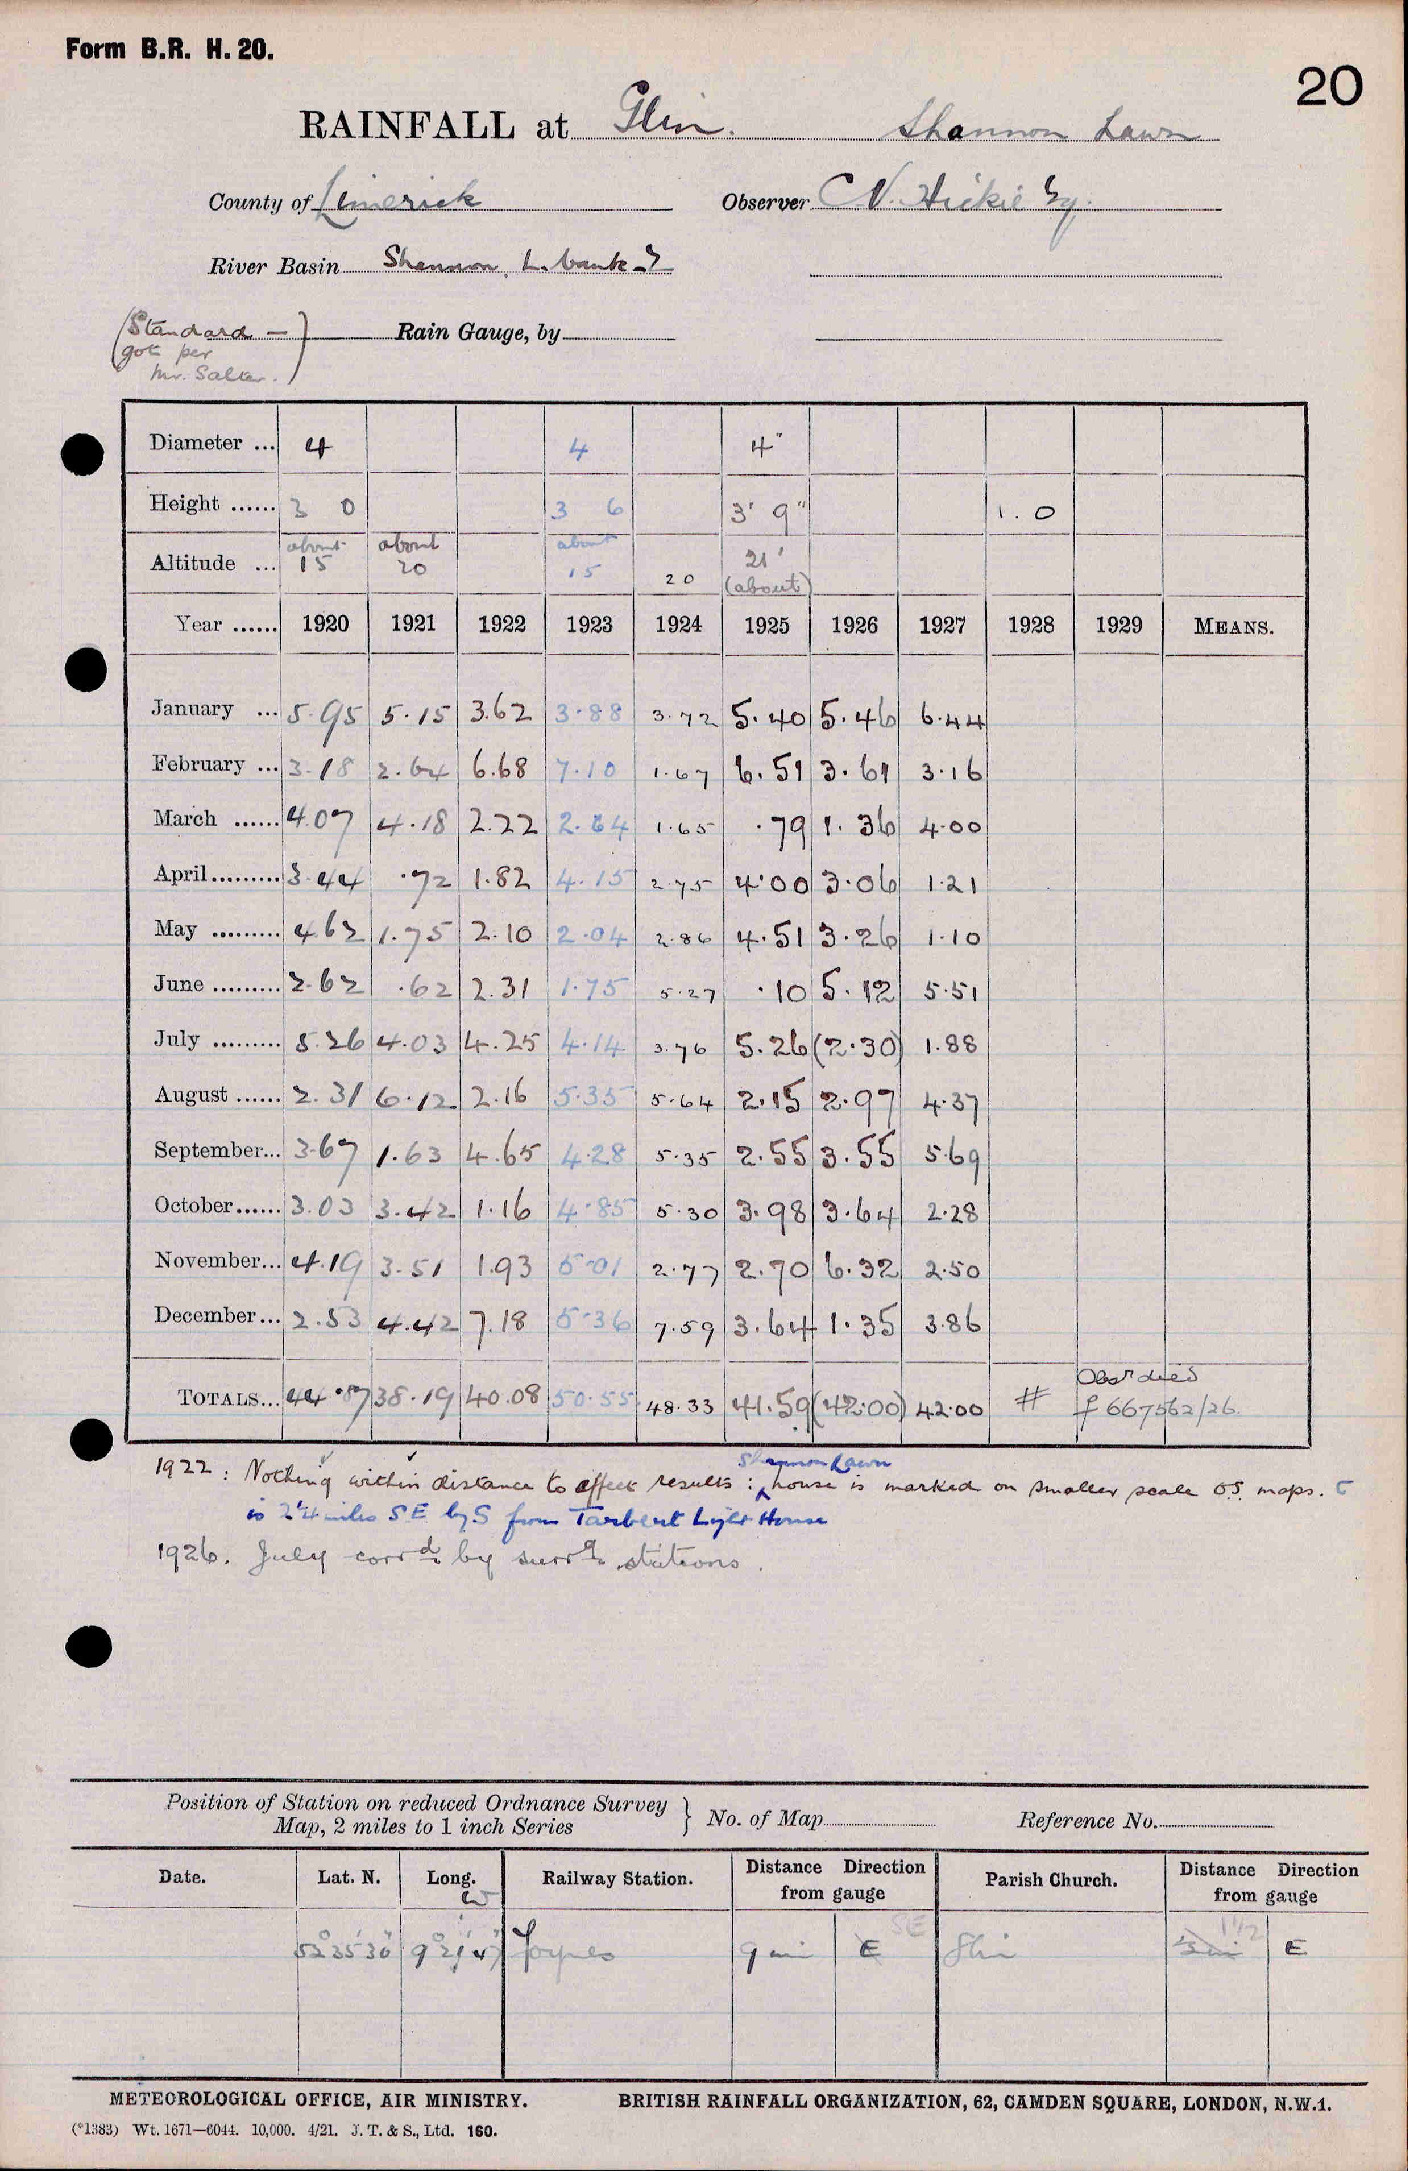 Form B.R. H. 20.
20
RAINFALL at Glin. Shannon Lawn
County of Limerick Observer C N. Hickie Esq.
River Basin Shannon, L. bank
(Standard — Rain Gauge, by
got per
Mr. Salter.)
Diameter ... 4 4 4"
Height ...... 3 0 3 6 3' 9" 1. 0
Altitude ... about 15 about 20 about 15 20 21' (about)
Year ...... 1920 1921 1922 1923 1924 1925 1926 1927 1928 1929 MEANS.
January ... 5.95 5.15 3.62 3.88 3.72 5.40 5.46 6.44
February ... 3.18 2.64 6.68 7.10 1.67 6.51 3.61 3.16
March ...... 4.07 4.18 2.22 2.64 1.65 .79 1.36 4.00
April ......... 3.44 .72 1.82 4.15 2.75 4.00 3.06 1.21
May ......... 4.62 1.75 2.10 2.04 2.86 4.51 3.26 1.10
June ......... 2.62 .62 2.31 1.75 5.27 .10 5.12 5.51
July ......... 5.26 4.03 4.25 4.14 3.76 5.26 (2.30) 1.88
August ...... 2.31 6.12 2.16 5.35 5.64 2.15 2.97 4.37
September... 3.67 1.63 4.65 4.28 5.35 2.55 3.55 5.69
October...... 3.03 3.42 1.16 4.85 5.30 3.98 3.64 2.28
November... 4.19 3.51 1.93 5.01 2.77 2.70 6.32 2.50
December... 2.53 4.42 7.18 5.36 7.59 3.64 1.35 3.86
Obsr died
TOTALS... 44.87 38.19 40.08 50.55 48.33 41.59 (42.00) 42.00 # f 667562/26.
Shannon Lawn
1922 : Nothing within distance to affect results : house is marked on smaller scale O.S. maps.
is 2¼ miles SE by S from Tarbert Light House
1926. July corrd. by surrg. stations.
Position of Station on reduced Ordnance Survey
Map, 2 miles to 1 inch Series } No. of Map Reference No.
Date. Lat. N. Long. W Railway Station. Distance Direction from gauge Parish Church. Distance Direction from gauge
SE 1½
52° 35' 30" 9° 21' 47" Foynes 9 mi E Glin E
METEOROLOGICAL OFFICE, AIR MINISTRY. BRITISH RAINFALL ORGANIZATION, 62, CAMDEN SQUARE, LONDON, N.W.1.
(*1383) Wt. 1671—6044. 10,000. 4/21. J. T. & S., Ltd. 160.